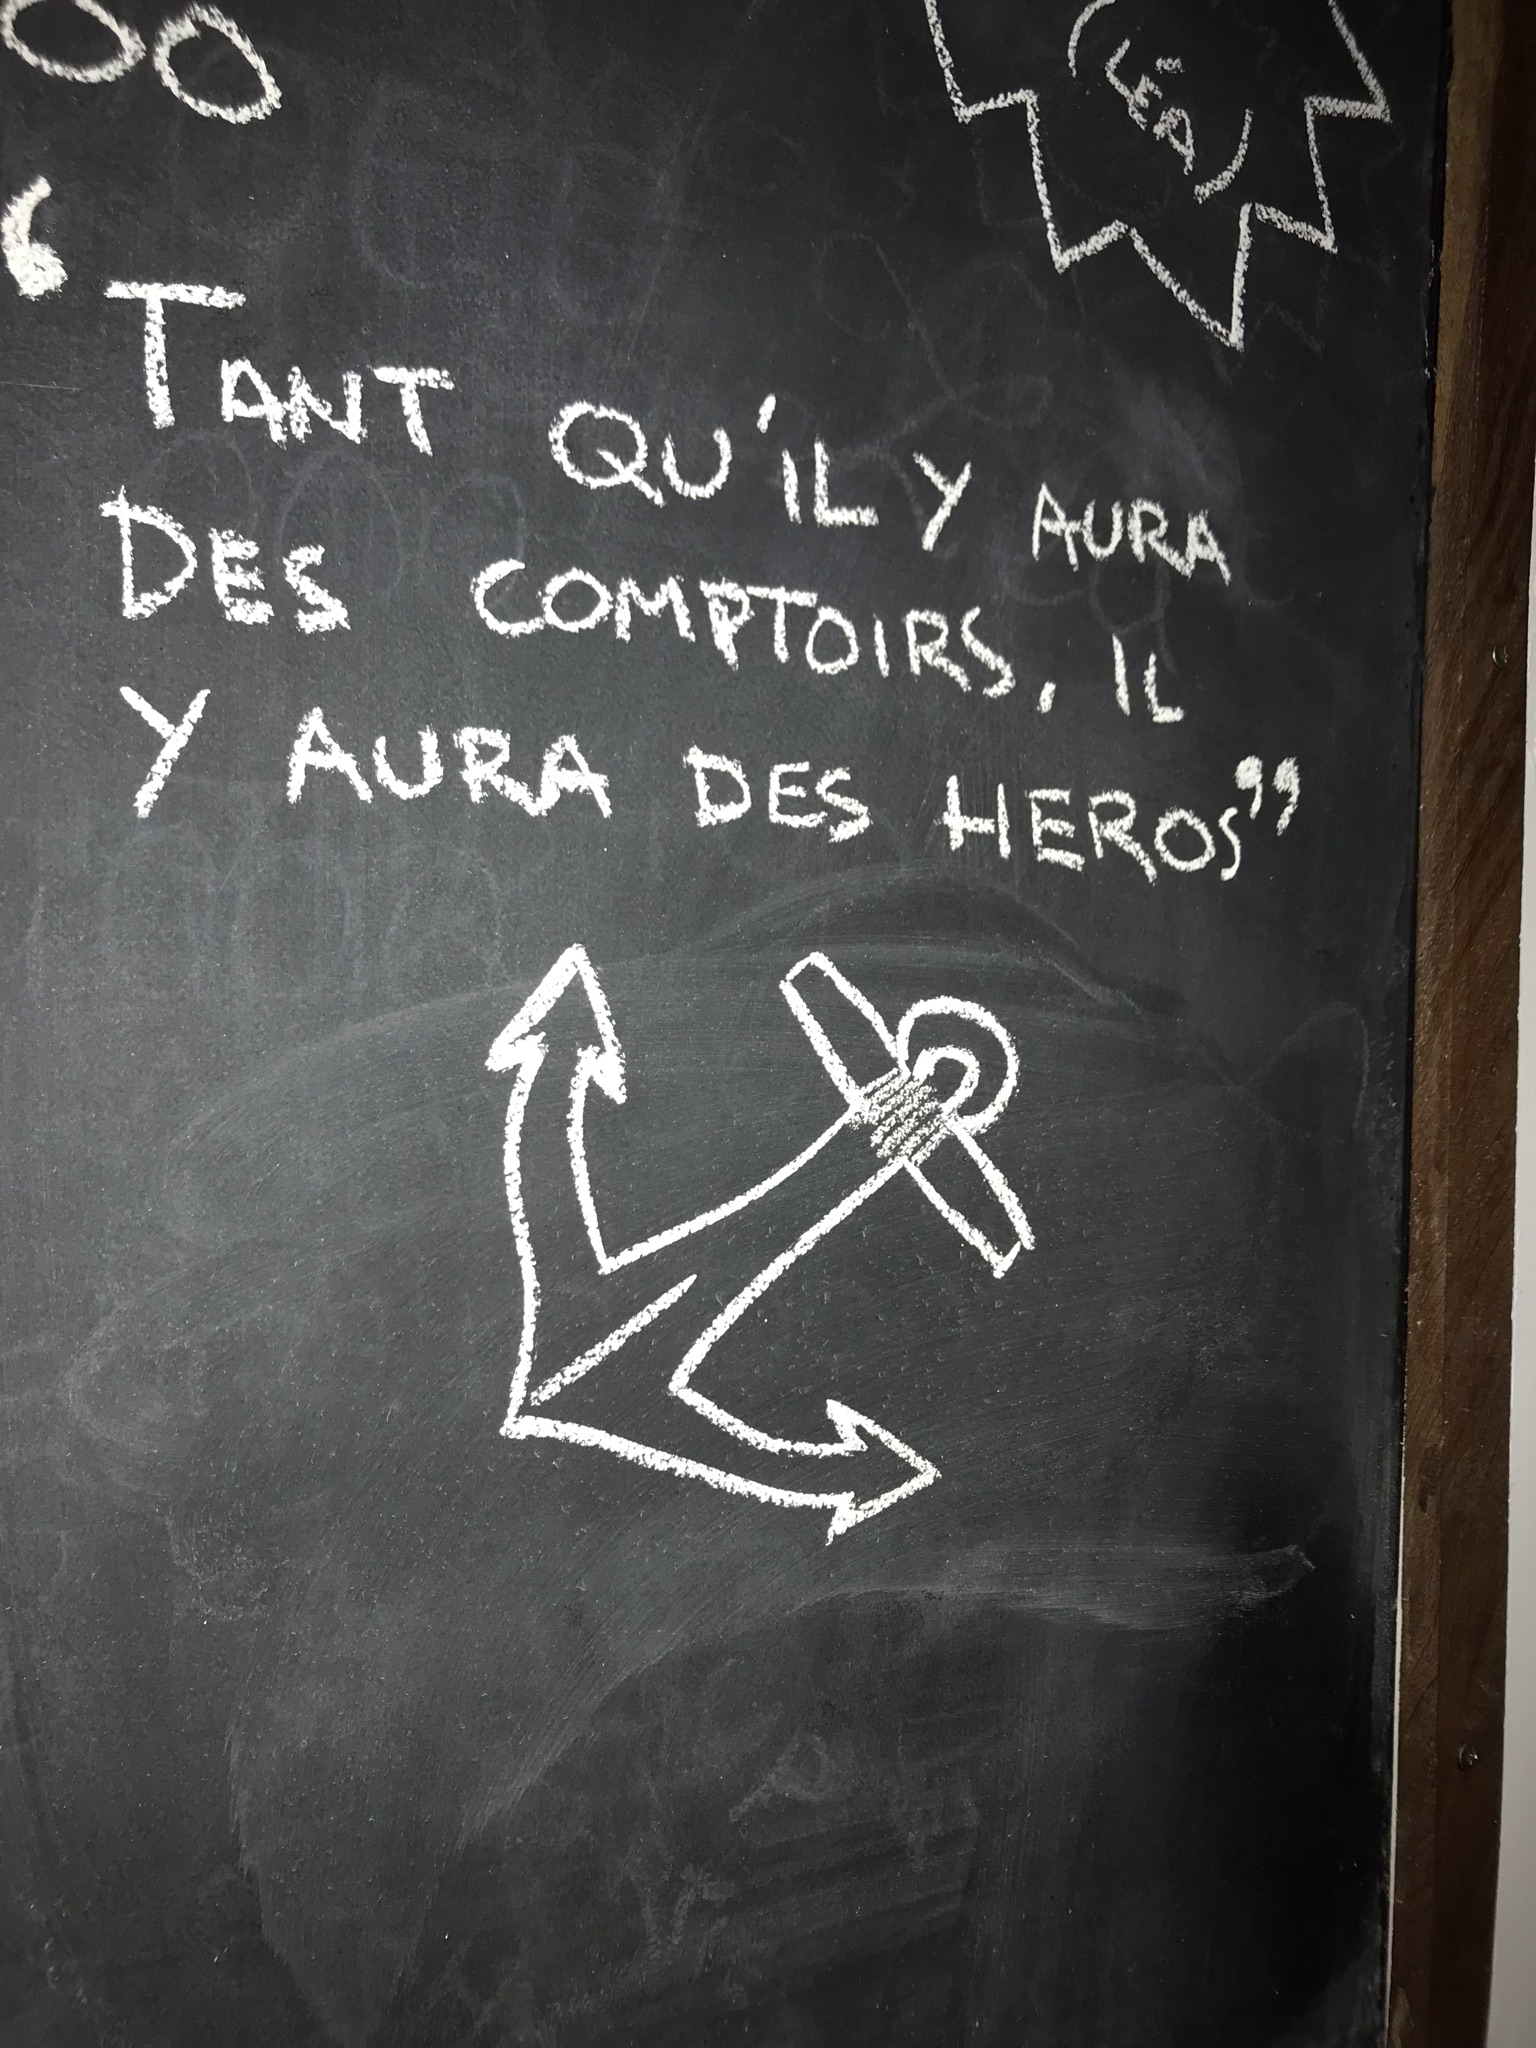 (LÉA)
“TANT QU'IL Y AURA
DES COMPTOIRS, IL
Y AURA DES HEROS”